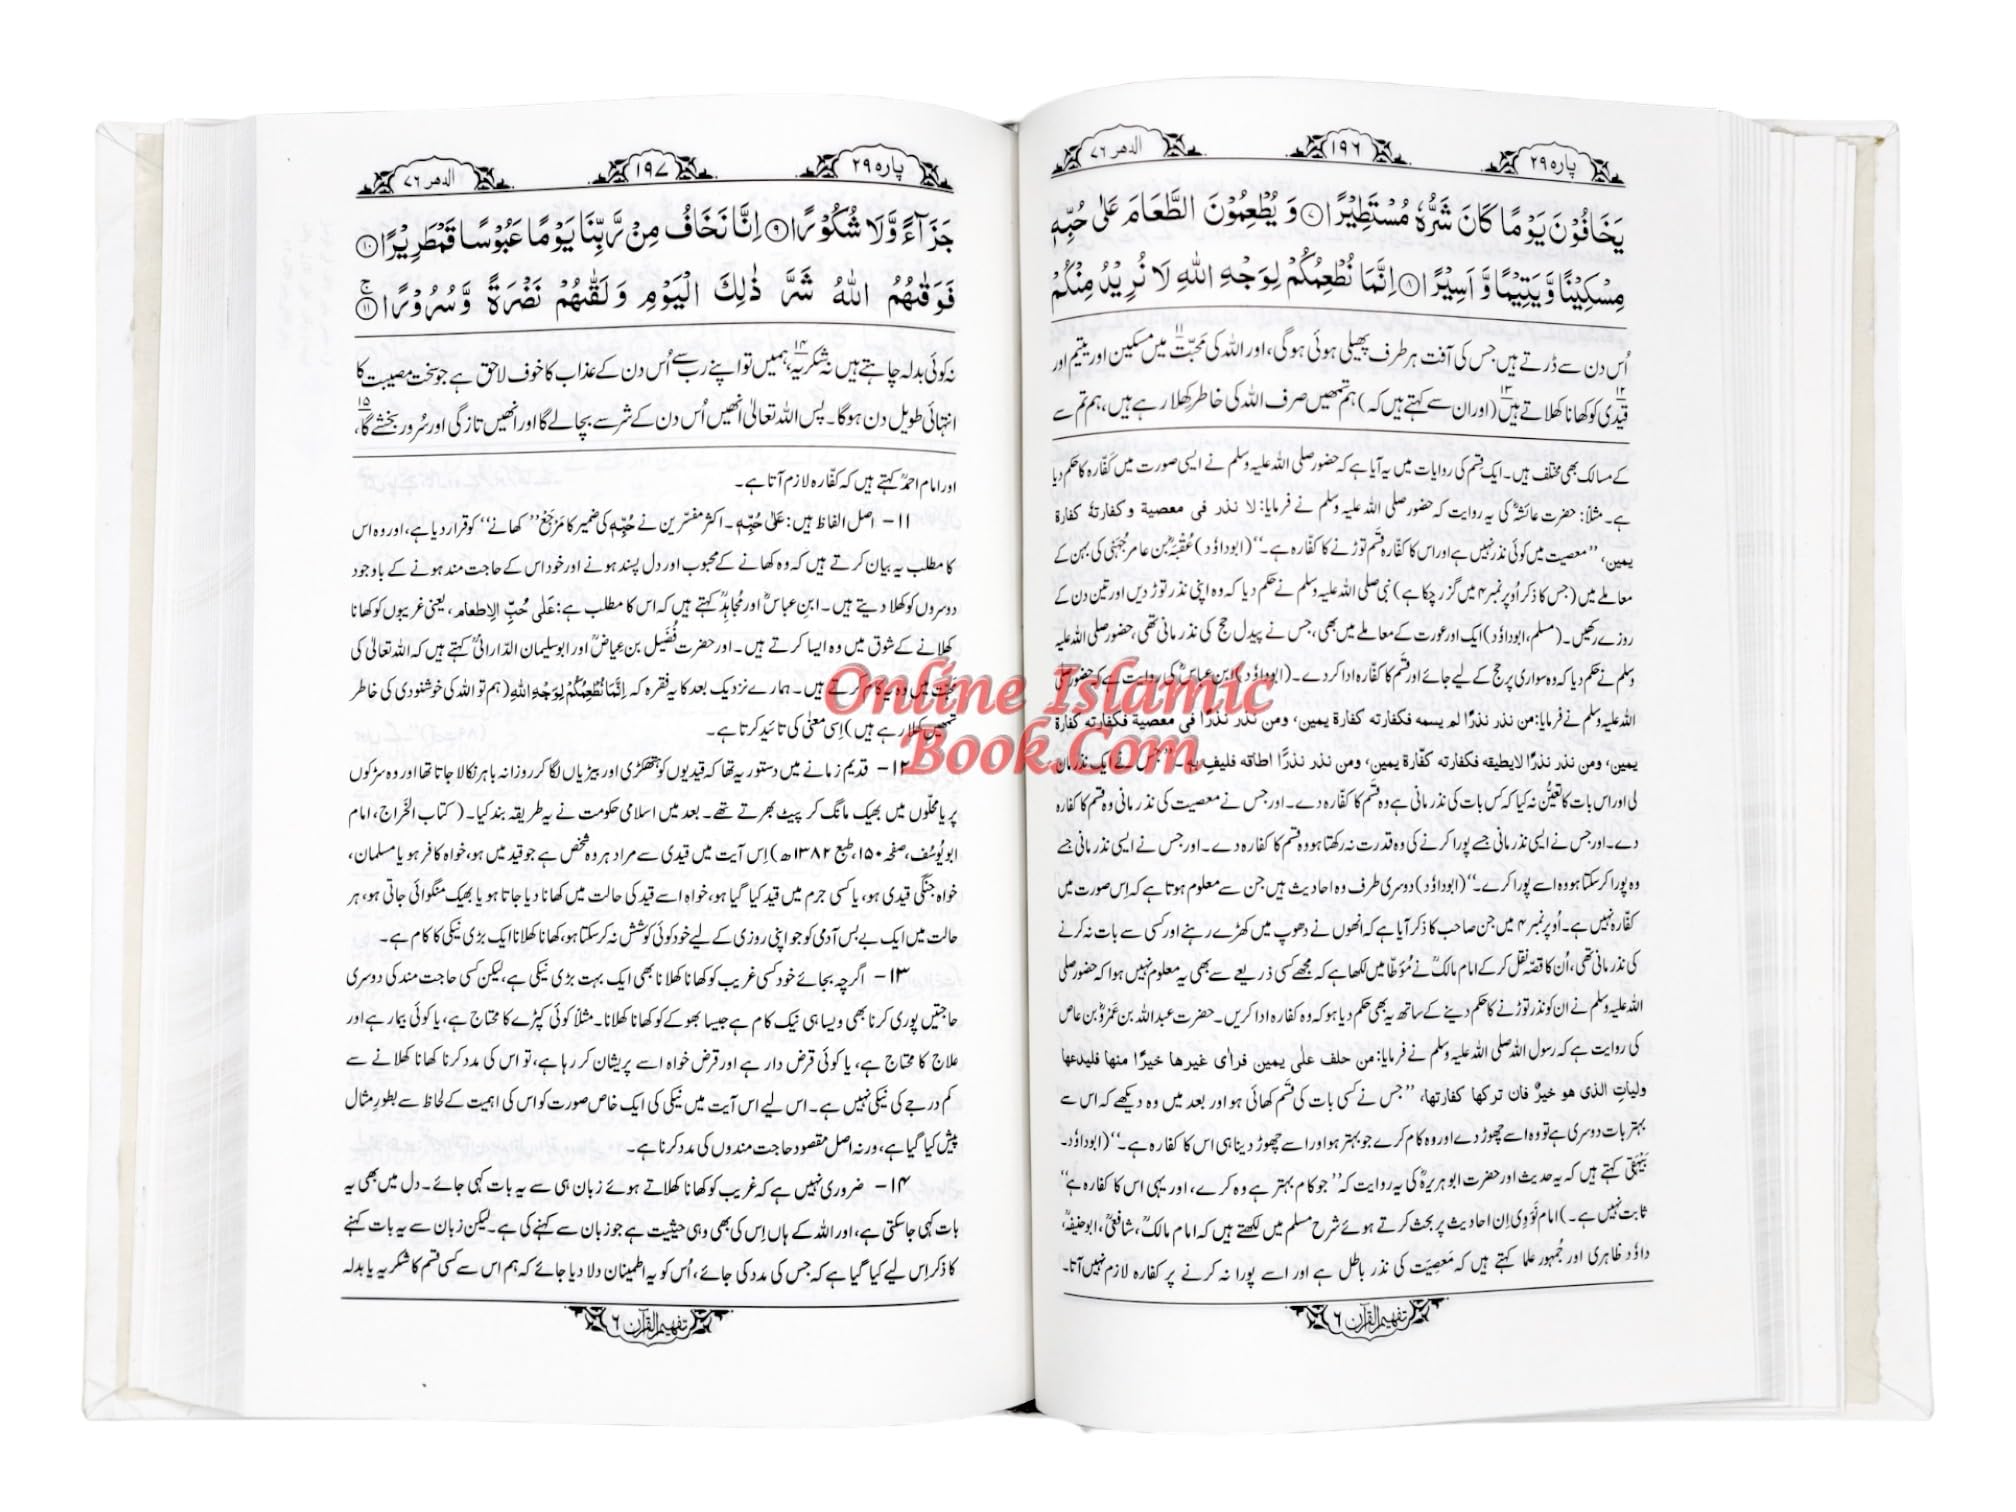 پارہ ۲۹
۱۹۶
الدھر ۷۶
يَخَافُوْنَ يَوْمًا كَانَ شَرُّهٗ مُسْتَطِيْرًا ﴿۷﴾ وَيُطْعِمُوْنَ الطَّعَامَ عَلٰى حُبِّهٖ
مِسْكِيْنًا وَّيَتِيْمًا وَّاَسِيْرًا ﴿۸﴾ اِنَّمَا نُطْعِمُكُمْ لِوَجْهِ اللّٰهِ لَا نُرِيْدُ مِنْكُمْ
اُس دن سے ڈرتے ہیں جس کی آفت ہر طرف پھیلی ہوئی ہوگی، اور اللہ کی محبّت۱۱ میں مسکین اور یتیم اور
قیدی۱۲ کو کھانا کھلاتے ہیں۱۳ (اور ان سے کہتے ہیں کہ) ہم تمھیں صرف اللہ کی خاطر کھلا رہے ہیں، ہم تم سے
کے مسالک بھی مختلف ہیں۔ ایک قسم کی روایات میں یہ آیا ہے کہ حضور صلی اللہ علیہ وسلم نے ایسی صورت میں کَفّارہ کا حکم دیا
ہے۔ مثلاً: حضرت عائشہؓ کی یہ روایت کہ حضور صلی اللہ علیہ وسلم نے فرمایا: لا نذر فی معصیۃ و کفارتهٗ کفارۃ
یمین، ”معصیت میں کوئی نذر نہیں ہے اور اس کا کفارہ قَسم توڑنے کا کفّارہ ہے۔“ (ابوداؤد) عُقْبہؓ بن عامر جُہَنی کی بہن کے
معاملے میں (جس کا ذکر اُوپر نمبر ۴ میں گزر چکا ہے) نبی صلی اللہ علیہ وسلم نے حکم دیا کہ وہ اپنی نذر توڑ دیں اور تین دن کے
روزے رکھیں۔ (مسلم، ابوداؤد) ایک اور عورت کے معاملے میں بھی، جس نے پیدل حج کی نذر مانی تھی، حضور صلی اللہ علیہ
وسلم نے حکم دیا کہ وہ سواری پر حج کے لیے جائے اور قسَم کا کفارہ ادا کر دے۔ (ابوداؤد) ابن عباسؓ کی روایت ہے کہ حضور صلی
اللہ علیہ وسلم نے فرمایا: من نذر نذرًا لم یسمه فکفارته کفارۃ یمین، ومن نذر نذرًا فی معصیۃ فکفارته کفارۃ
یمین، ومن نذر نذرًا لا یطیقه فکفارته کفّارۃ یمین، ومن نذر نذرًا اطاقه فلیفِ به۔ ”جس نے ایک نذر مان
لی اور اس بات کا تعیُّن نہ کیا کہ کس بات کی نذر مانی ہے وہ قَسم کا کفّارہ دے۔ اور جس نے معصیت کی نذر مانی وہ قسم کا کفارہ
دے۔ اور جس نے ایسی نذر مانی جسے پورا کرنے کی وہ قدرت نہ رکھتا ہو وہ قسم کا کفارہ دے۔ اور جس نے ایسی نذر مانی جسے
وہ پورا کر سکتا ہو وہ اسے پورا کرے۔“ (ابوداؤد) دوسری طرف وہ احادیث ہیں جن سے معلوم ہوتا ہے کہ اِس صورت میں
کفّارہ نہیں ہے۔ اُوپر نمبر ۴ میں جن صاحب کا ذکر آیا ہے کہ انھوں نے دھوپ میں کھڑے رہنے اور کسی سے بات نہ کرنے
کی نذر مانی تھی، اُن کا قصّہ نقل کر کے امام مالکؒ نے مُؤطّا میں لکھا ہے کہ مجھے کسی ذریعے سے بھی یہ معلوم نہیں ہوا کہ حضور صلی
اللہ علیہ وسلم نے ان کو نذر توڑنے کا حکم دینے کے ساتھ یہ بھی حکم دیا ہو کہ وہ کفارہ ادا کریں۔ حضرت عبداللہ بن عَمْروؓ بن عاص
کی روایت ہے کہ رسول اللہ صلی اللہ علیہ وسلم نے فرمایا: من حلف علٰی یمین فراٰی غیرھا خیرًا منھا فلیدعھا
ولیاتِ الذی ھو خیرٌ فان ترکھا کفارتھا، ”جس نے کسی بات کی قَسَم کھائی ہو اور بعد میں وہ دیکھے کہ اس سے
بہتر بات دوسری ہے تو وہ اسے چھوڑ دے اور وہ کام کرے جو بہتر ہو اور اسے چھوڑ دینا ہی اس کا کفارہ ہے۔“ (ابوداؤد۔
بَیْہَقی کہتے ہیں کہ یہ حدیث اور حضرت ابوہریرہؓ کی یہ روایت کہ ”جو کام بہتر ہے وہ کرے، اور یہی اس کا کفارہ ہے“
ثابت نہیں ہے۔) امام نَوَوِی اِن احادیث پر بحث کرتے ہوئے شرح مسلم میں لکھتے ہیں کہ امام مالکؒ، شافعیؒ، ابوحنیفہؒ،
داؤد ظاہری اور جُمہور علما کہتے ہیں کہ مَعصِیَت کی نذر باطل ہے اور اسے پورا نہ کرنے پر کفارہ لازم نہیں آتا۔
تفہیم القرآن ۶
پارہ ۲۹
۱۹۷
الدھر ۷۶
جَزَآءً وَّلَا شُكُوْرًا ﴿۹﴾ اِنَّا نَخَافُ مِنْ رَّبِّنَا يَوْمًا عَبُوْسًا قَمْطَرِيْرًا ﴿۱۰﴾
فَوَقٰىهُمُ اللّٰهُ شَرَّ ذٰلِكَ الْيَوْمِ وَلَقّٰىهُمْ نَضْرَةً وَّسُرُوْرًا ﴿۱۱﴾
نہ کوئی بدلہ چاہتے ہیں نہ شکریہ۱۴، ہمیں تو اپنے رب سے اُس دن کے عذاب کا خوف لاحق ہے جو سخت مصیبت کا
انتہائی طویل دن ہوگا۔ پس اللہ تعالیٰ انھیں اُس دن کے شر سے بچا لے گا اور انھیں تازگی اور سُرور بخشے گا۱۵،
اور امام احمدؒ کہتے ہیں کہ کفّارہ لازم آتا ہے۔
۱۱- اصل الفاظ ہیں: عَلٰی حُبِّهٖ۔ اکثر مفسّرین نے حُبِّهٖ کی ضمیر کا مَرْجَع ”کھانے“ کو قرار دیا ہے، اور وہ اس
کا مطلب یہ بیان کرتے ہیں کہ وہ کھانے کے محبوب اور دل پسند ہونے اور خود اس کے حاجت مند ہونے کے باوجود
دوسروں کو کھلا دیتے ہیں۔ ابنِ عباسؓ اور مُجاہدؒ کہتے ہیں کہ اس کا مطلب ہے: عَلٰی حُبِّ الْاِطعام، یعنی غریبوں کو کھانا
کھلانے کے شوق میں وہ ایسا کرتے ہیں۔ اور حضرت فُضَیل بن عِیاضؒ اور ابوسلیمان الدّارانیؒ کہتے ہیں کہ اللہ تعالیٰ کی
محبّت میں وہ یہ کام کرتے ہیں۔ ہمارے نزدیک بعد کا یہ فقرہ کہ اِنَّمَا نُطْعِمُكُمْ لِوَجْهِ اللّٰهِ (ہم تو اللہ کی خوشنودی کی خاطر
تمھیں کھلا رہے ہیں) اِسی معنٰی کی تائید کرتا ہے۔
۱۲- قدیم زمانے میں دستور یہ تھا کہ قیدیوں کو ہتھکڑی اور بیڑیاں لگا کر روزانہ باہر نکالا جاتا تھا اور وہ سڑکوں
پر یا محلّوں میں بھیک مانگ کر پیٹ بھرتے تھے۔ بعد میں اسلامی حکومت نے یہ طریقہ بند کیا۔ (کتاب الخَراج، امام
ابویُوسُف، صفحہ ۱۵۰، طبع ۱۳۸۲ھ) اِس آیت میں قیدی سے مراد ہر وہ شخص ہے جو قید میں ہو، خواہ کافر ہو یا مسلمان،
خواہ جنگی قیدی ہو، یا کسی جرم میں قید کیا گیا ہو، خواہ اسے قید کی حالت میں کھانا دیا جاتا ہو یا بھیک منگوائی جاتی ہو، ہر
حالت میں ایک بے بس آدمی کو جو اپنی روزی کے لیے خود کوئی کوشش نہ کر سکتا ہو، کھانا کھلانا ایک بڑی نیکی کا کام ہے۔
۱۳- اگرچہ بجائے خود کسی غریب کو کھانا کھلانا بھی ایک بہت بڑی نیکی ہے، لیکن کسی حاجت مند کی دوسری
حاجتیں پوری کرنا بھی ویسا ہی نیک کام ہے جیسا بھوکے کو کھانا کھلانا۔ مثلاً کوئی کپڑے کا محتاج ہے، یا کوئی بیمار ہے اور
علاج کا محتاج ہے، یا کوئی قرض دار ہے اور قرض خواہ اسے پریشان کر رہا ہے، تو اس کی مدد کرنا کھانا کھلانے سے
کم درجے کی نیکی نہیں ہے۔ اس لیے اس آیت میں نیکی کی ایک خاص صورت کو اس کی اہمیت کے لحاظ سے بطورِ مثال
پیش کیا گیا ہے، ورنہ اصل مقصود حاجت مندوں کی مدد کرنا ہے۔
۱۴- ضروری نہیں ہے کہ غریب کو کھانا کھلاتے ہوئے زبان ہی سے یہ بات کہی جائے۔ دل میں بھی یہ
بات کہی جاسکتی ہے، اور اللہ کے ہاں اِس کی بھی وہی حیثیت ہے جو زبان سے کہنے کی ہے۔ لیکن زبان سے یہ بات کہنے
کا ذکر اِس لیے کیا گیا ہے کہ جس کی مدد کی جائے، اُس کو یہ اطمینان دلا دیا جائے کہ ہم اس سے کسی قسم کا شکریہ یا بدلہ
تفہیم القرآن ۶
Online Islamic
Book.Com